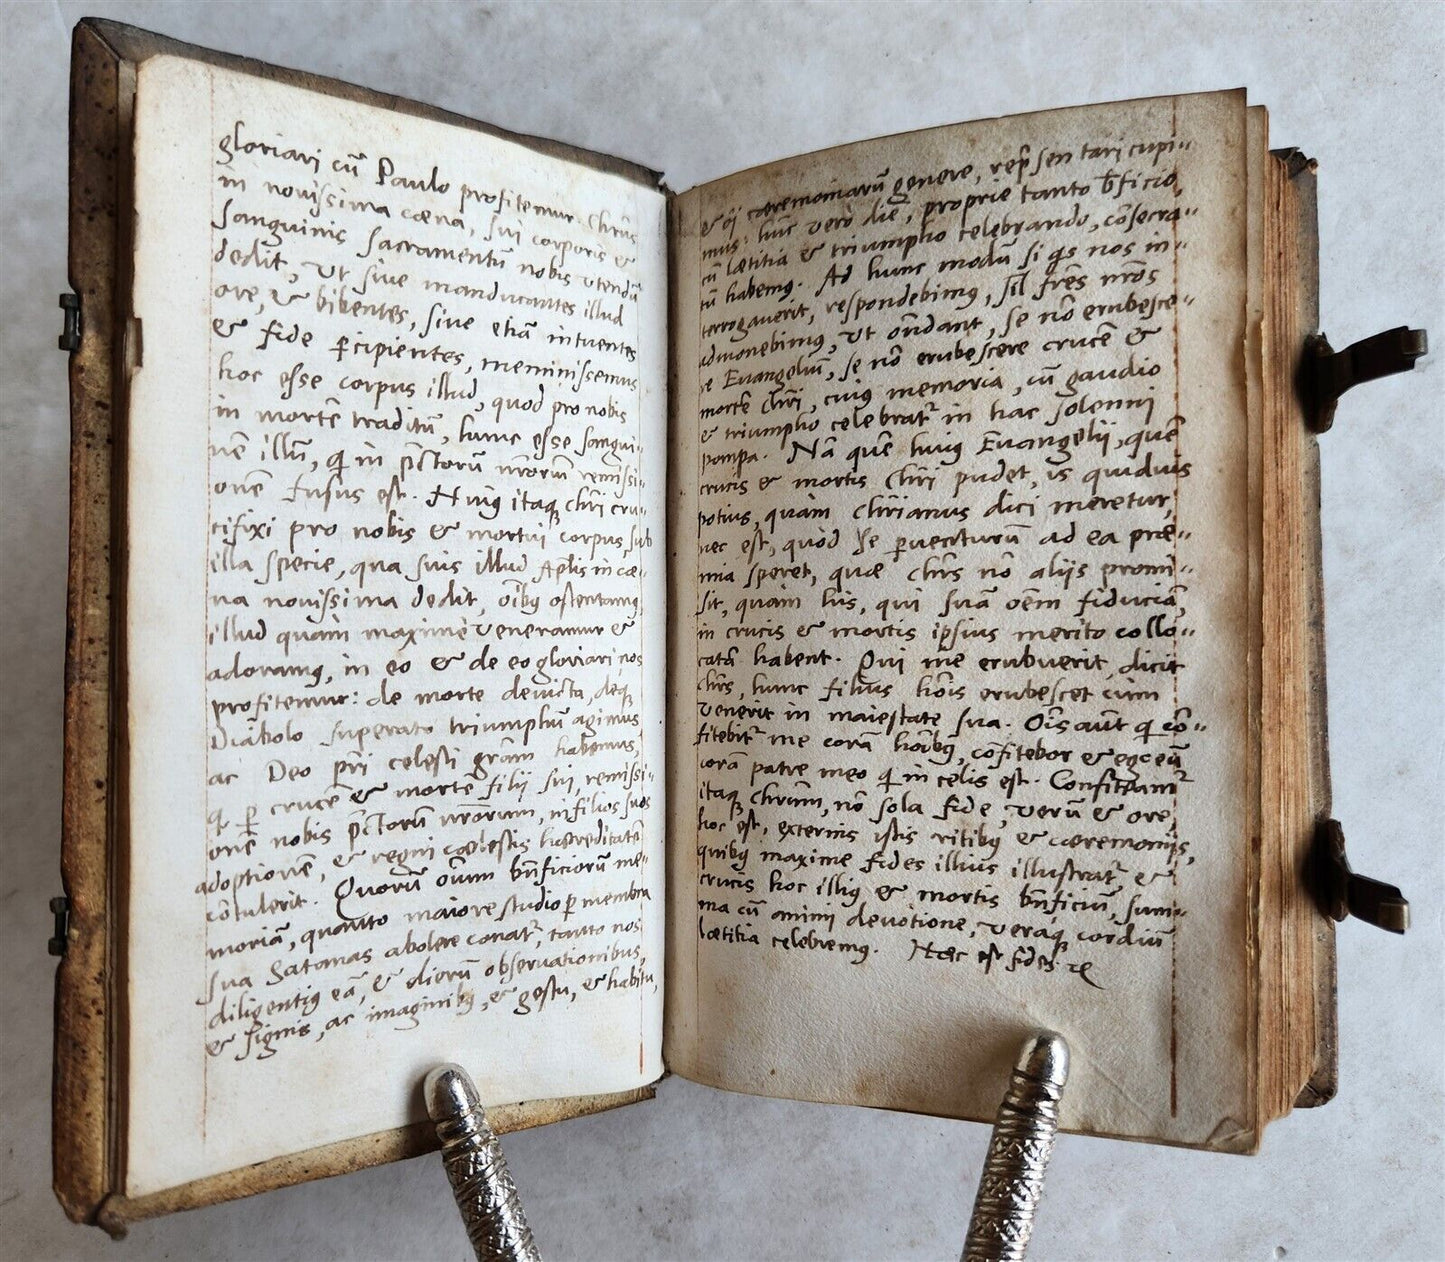 gloriari cū Paulo profitemur. Chrūs
in novissima cæna, sui corporis &
sanguinis sacramentū nobis utendū
dedit, ut sive manducantes illud
ore, & bibentes, sive etiā intuentes
& fide ꝑcipientes, meminissemus
hoc esse corpus illud, quod pro nobis
in mortē traditū, hunc esse sangui-
nem illū, q̄ in pctorū nrorum remissi-
onē fusus est. Huiꝰ itaqꝫ Chri cru-
cifixi pro nobis & mortui corpus, sub
illa specie, qua suis illud Aplis in cæ-
na novissima dedit, oībꝰ ostentamꝰ
illud quam maxime veneramur &
adoramꝰ, in eo & de eo gloriari nos
profitemur: de morte devicta, deqꝫ
Diabolo superato triumphū agimus
ac Deo pri celesti gram habemus,
q̄ ꝑ crucē & mortē filii sui, remissi-
onē nobis pctorū nrorum, in filios suos
adoptionē, & regni cælestis hæreditatē
cōtulerit. Quorū oium bnficiorū me-
moriā, quanto maiore studio ꝑ membra
sua Satanas abolere conatr, tanto nos
diligentiꝰ eā, & dierū observationibus,
& signis, ac imaginibꝰ, & gestu, & habitu,
& oī cæremoniarū genere, repsentari cupi-
mus: hūc vero diē, proprie tanto bficio,
cū lætitia & triumpho celebrando, cōsecra-
tū habemꝰ. Ad hunc modū si qs nos in-
terrogaverit, respondebimꝰ, frēs nros
admonebimꝰ, ut ōndant, se nō erubesce-
re Evangeliū, se nō erubescere crucē &
mortē Chri, cuiꝰ memoria, cū gaudio
& triumpho celebratr in hac solenni
pompa. Nā quē huiꝰ Evangelii, quē
crucis & mortis Chri pudet, is quidvis
potius, quam Chrianus dici meretur,
nec est, quod se ꝑventurū ad ea præ-
mia speret, quæ Chrs nō aliis promi-
sit, quam his, qui suā oēm fiduciā,
in crucis & mortis ipsius merito collo-
catā habent. Qui me erubuerit, dicit
Chrs, hunc filius hōis erubescet cum
venerit in maiestate sua. Ois aut q̄ cō-
fitebitr me corā hoībꝰ, cōfitebor & ego eū
corā patre meo q̄ in celis est. Confiteamr
itaqꝫ Chrum, nō sola fide, verū & ore,
hoc est, externis istis ritibꝰ & cæremoniis,
quibꝰ maxime fides illius illustratr, &
crucis hoc illiꝰ & mortis bnficiū, sum-
ma cū animi devotione, veraqꝫ cordiū
lætitia celebremꝰ. Hæc est fides